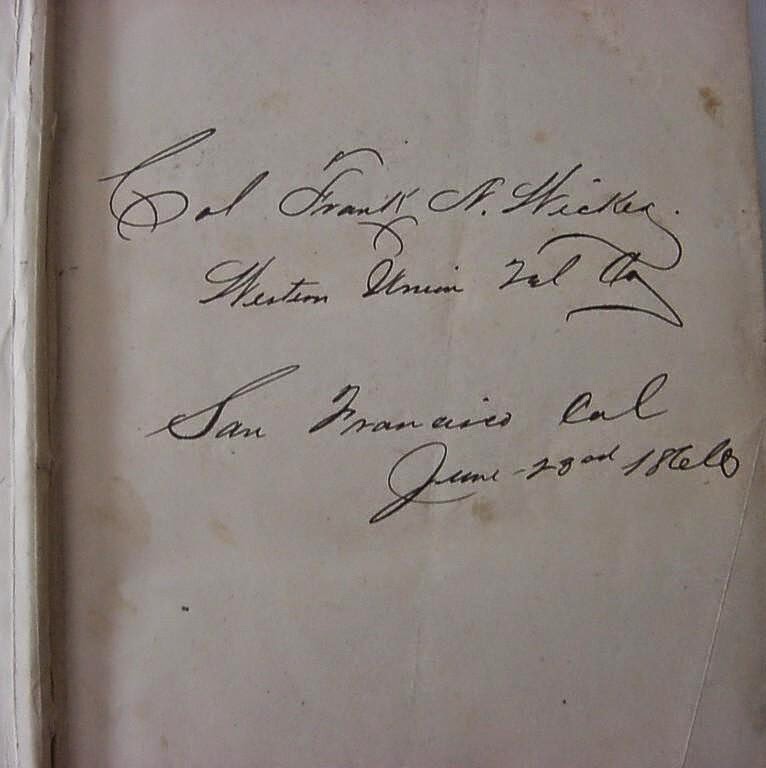 Col Frank N. Wicker.
Western Union Tel Co
San Francisco Cal
June 23rd 1866